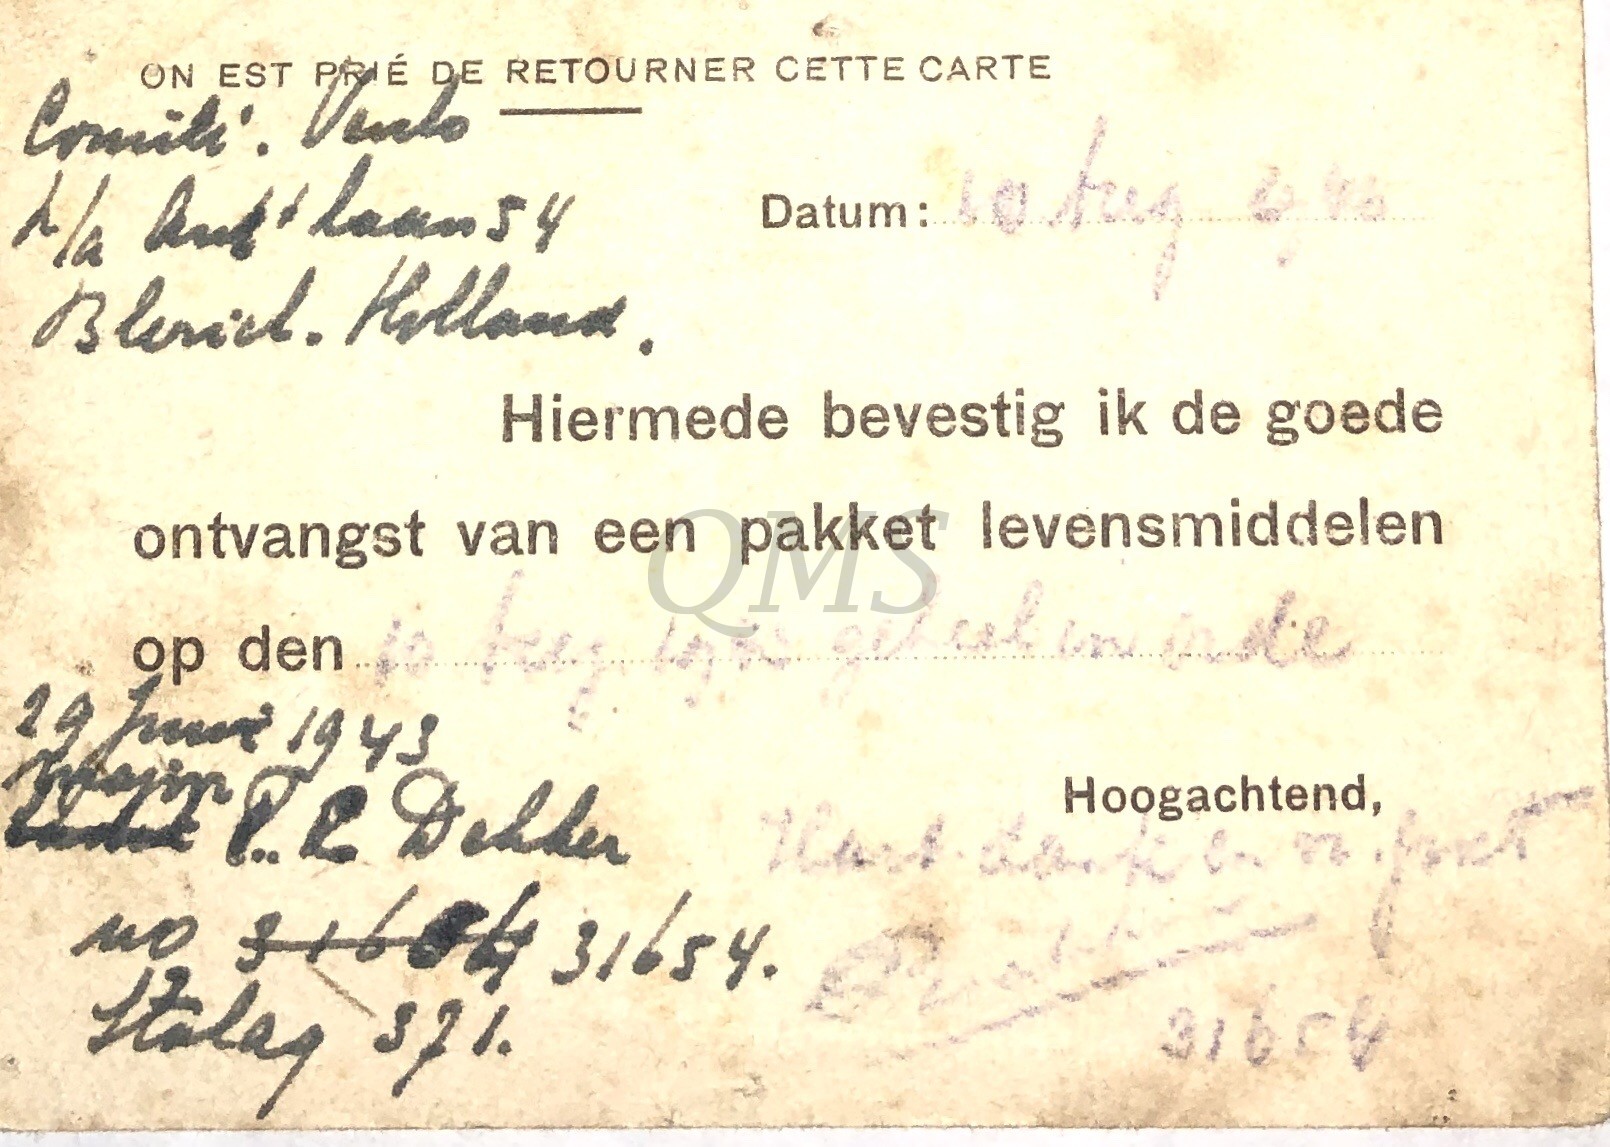 ON EST PRIÉ DE RETOURNER CETTE CARTE
Comité. Venlo
Laan 54
Blerick. Holland.
Datum: 10 Aug
Hiermede bevestig ik de goede
ontvangst van een pakket levensmiddelen
op den 10 Aug geheel in orde
29 Juni 1943
Majoor
P. R. Dekker
no 31654.
Stalag 371.
Hoogachtend,
Hart. dank en m. groet
31654
QMS